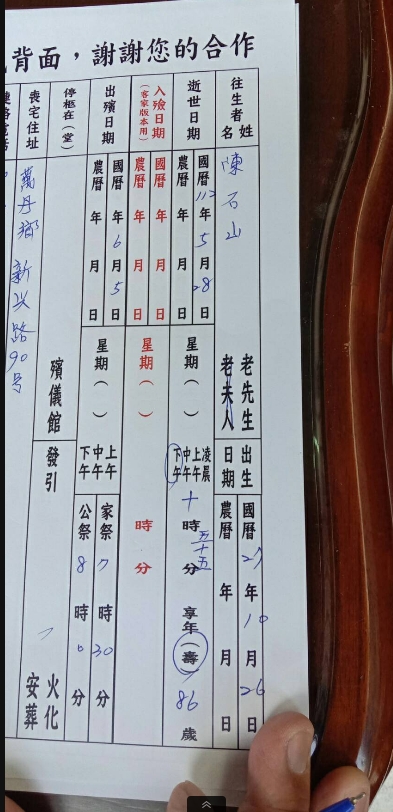 背面，謝謝您的合作
往生者姓名
陳石山
老先生
老夫人
出生日期
國曆27年10月26日
農曆 年 月 日
逝世日期
國曆112年5月28日
農曆 年 月 日
星期（ ）
凌晨
上午
中午
下午
十時五十五分
享年（壽）86歲
入殮日期
（客家版本用）
國曆 年 月 日
農曆 年 月 日
星期（ ）
時 分
出殯日期
國曆 年6月5日
農曆 年 月 日
星期（ ）
上午
中午
下午
家祭7時30分
公祭8時0分
停柩在（堂）
殯儀館
發引
火化
安葬
喪宅住址
萬丹鄉新兴路90号